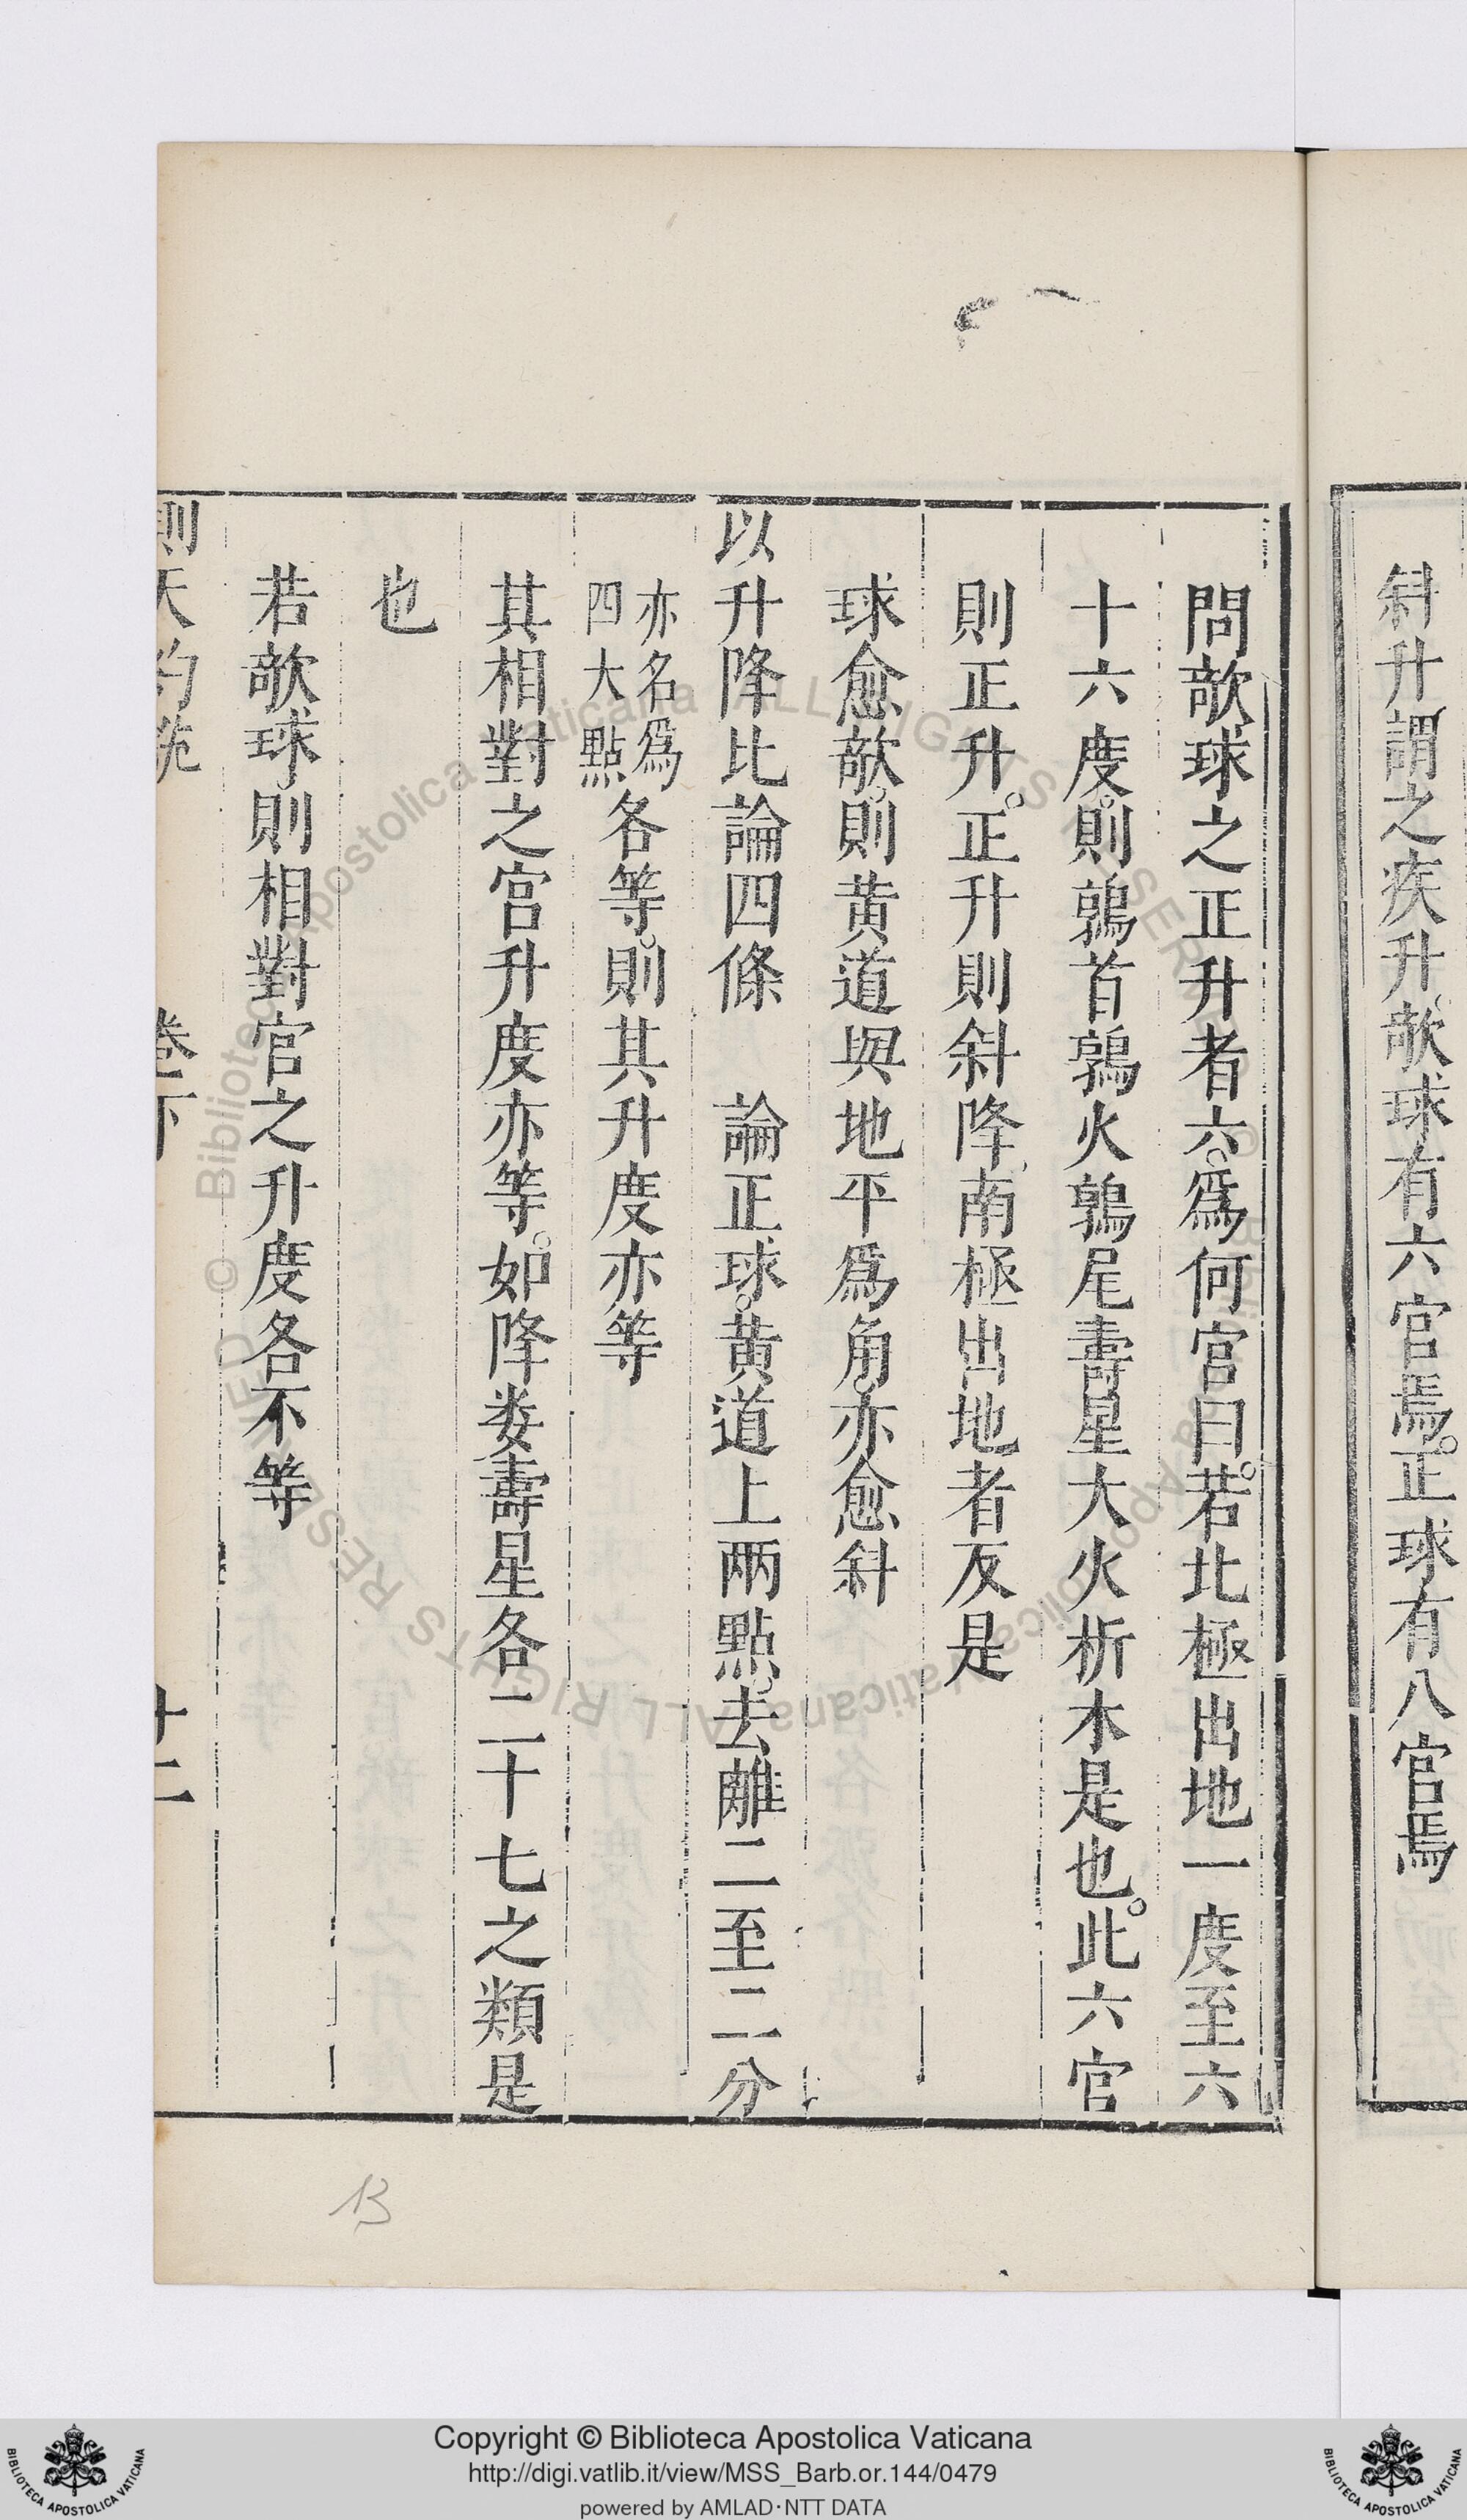 斜升謂之疾升欹球有六宮焉。正球有八宮焉
問欹球之正升者六。爲何宮曰。若北極出地一度至六
十六度。則鶉首鶉火鶉尾壽星大火析木是也。此六宮
則正升。正升則斜降、南極出地者反是
球愈欹。則黄道與地平爲角。亦愈斜
以升降比論四條　論正球。黄道上兩點。去離二至二分
亦名爲
四大點
各等。則其升度亦等
其相對之宮升度亦等。如降婁壽星各二十七之類是
也
若欹球、則相對宮之升度各不等
則天
卷下
廿二
13
Copyright © Biblioteca Apostolica Vaticana
http://digi.vatlib.it/view/MSS_Barb.or.144/0479
powered by AMLAD·NTT DATA